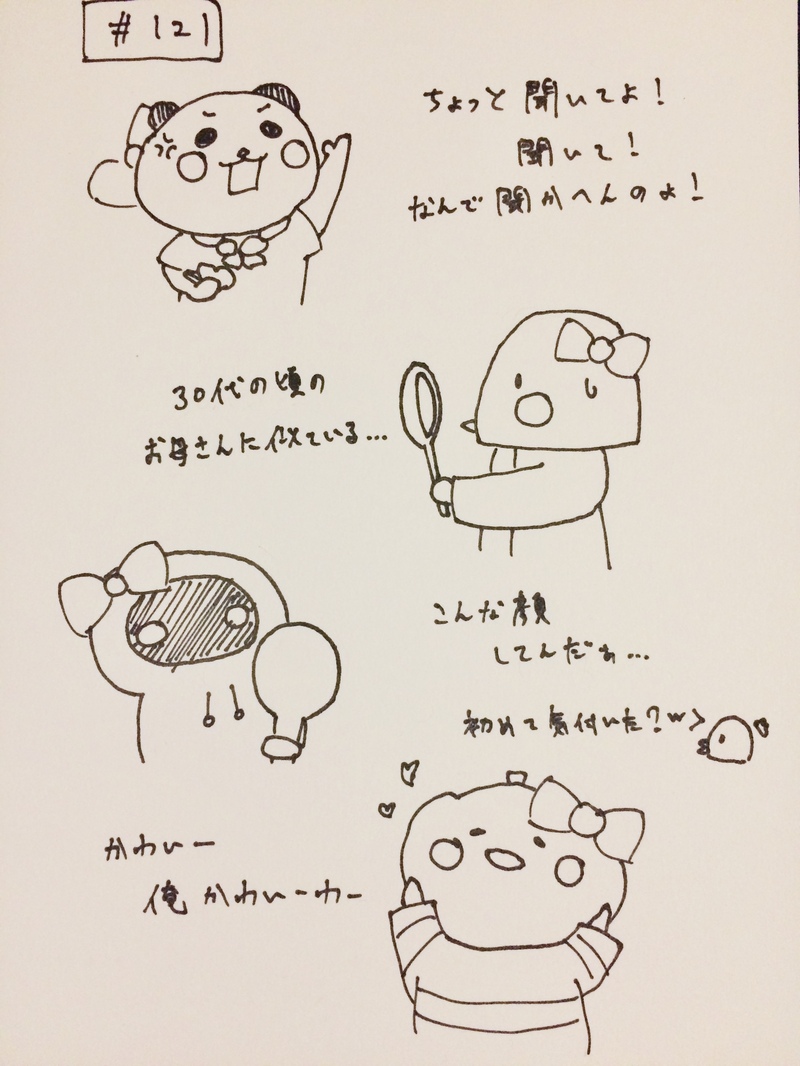 #121
ちょっと聞いてよ!
聞いて!
なんで聞かへんのよ!
30代の頃の
お母さんに似ている...
こんな顔
してんだぁ...
初めて気付いた?w>
かわいー
俺かわいーわー